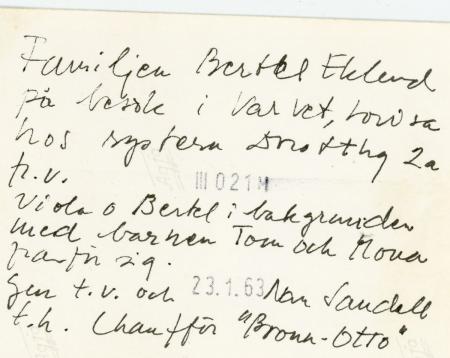 Familjen Bertel Eklund
på besök i Varvet, Lovisa
hos systern Drottng 2a
t.v.
III 021M
Viola o Bertel i bakgrunden
med barnen Tom och Mona
framför sig.
t.v. och 23.1.63 Nan Sandell
t.h. Chaufför "Bronn-Otto"